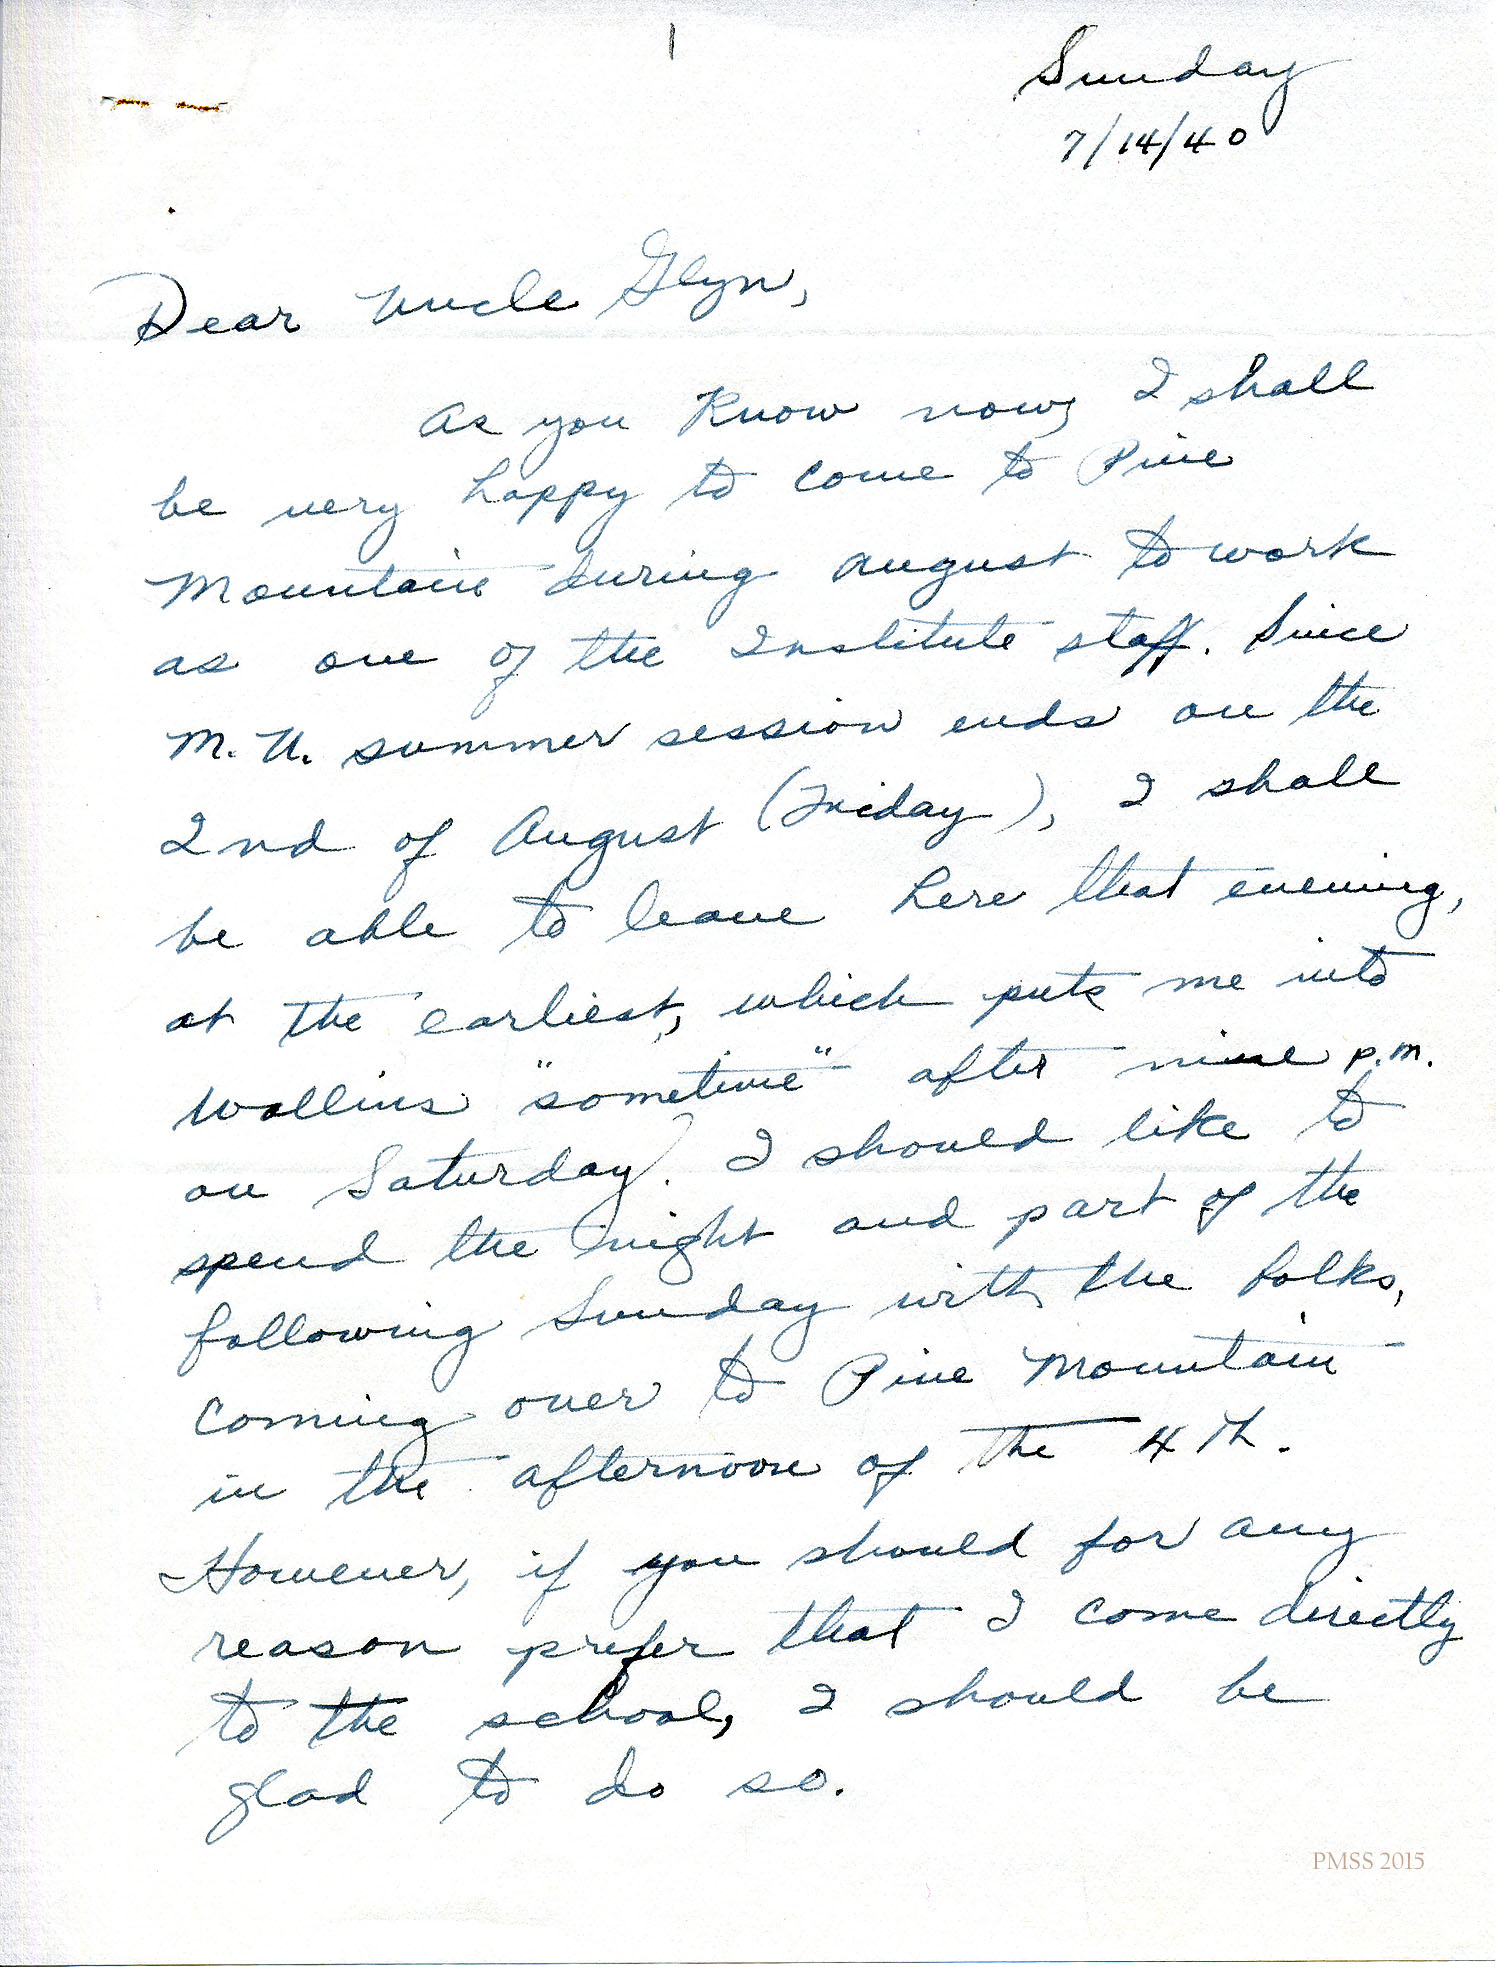 1
Sunday
7/14/40
Dear Uncle Glyn,
As you know now, I shall
be very happy to come to Pine
Mountain during August to work
as one of the Institute staff. Since
M. U. summer session ends on the
2nd of August (Friday), I shall
be able to leave here that evening,
at the earliest, which puts me into
Wallins "sometime" after nine p.m.
on Saturday. I should like to
spend the night and part of the
following Sunday with the folks,
coming over to Pine Mountain
in the afternoon of the 4th.
However, if you should for any
reason prefer that I come directly
to the school, I should be
glad to do so.
PMSS 2015